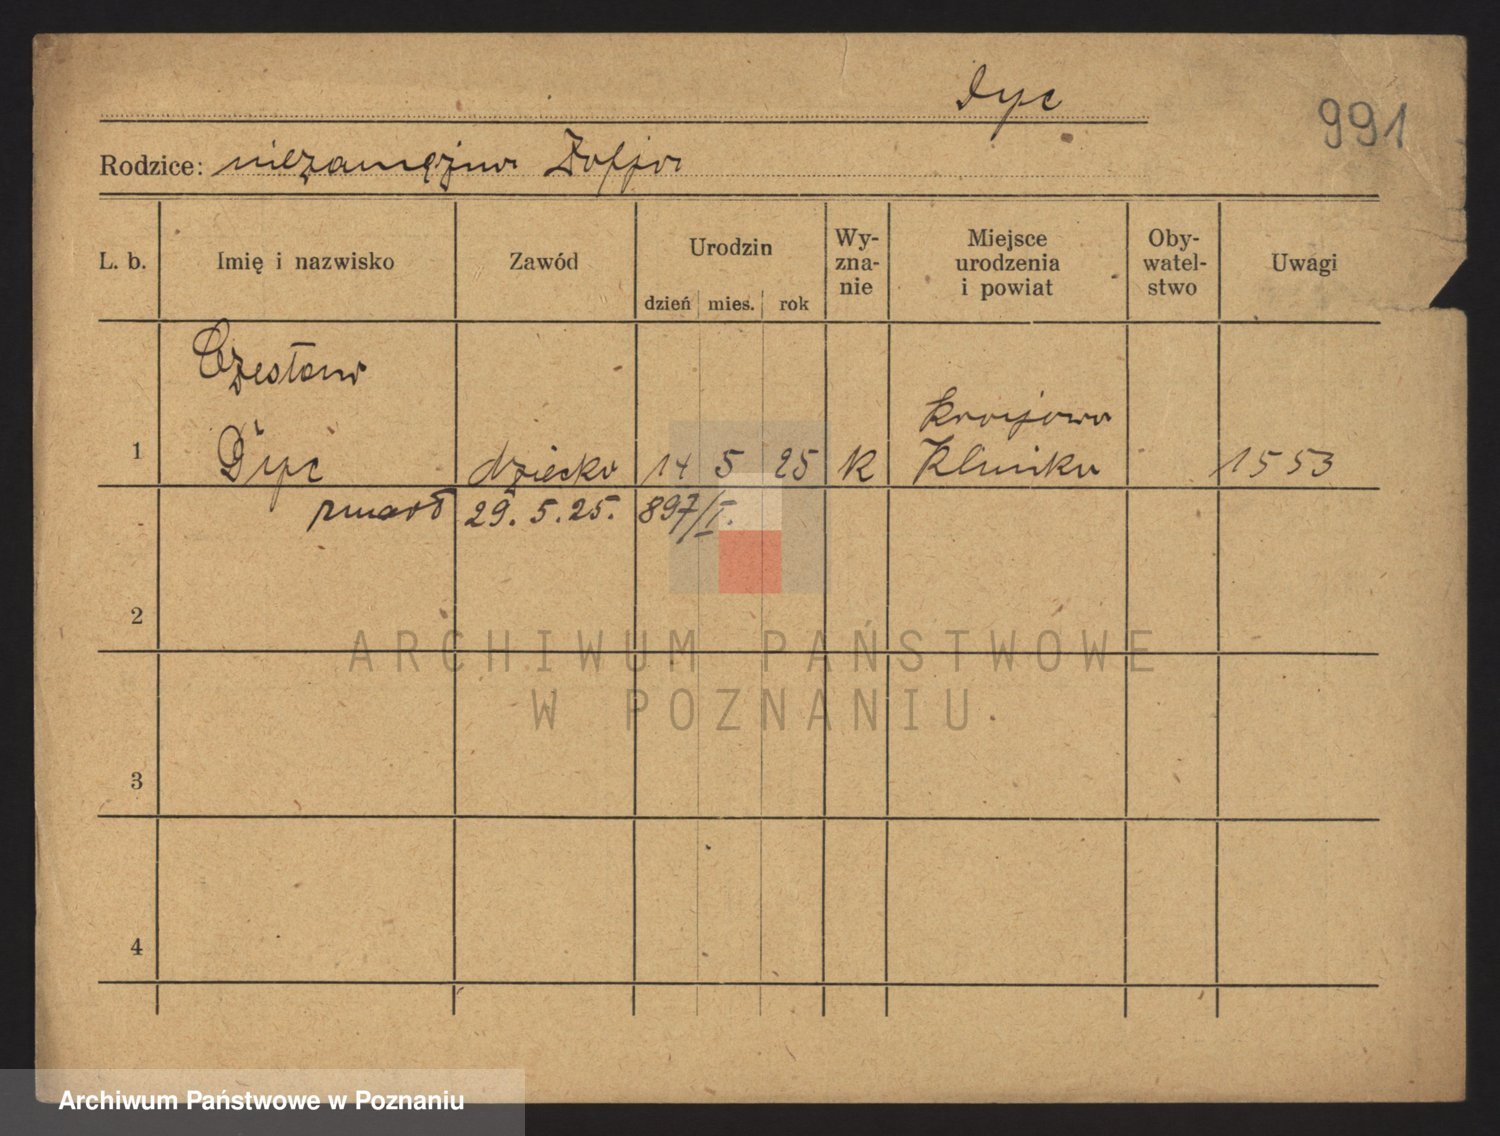 Dyc
991
Rodzice: niezamężna Zofja
L. b. Imię i nazwisko Zawód Urodzin dzień mies. rok Wy-zna-nie Miejsce urodzenia i powiat Oby-watel-stwo Uwagi
Czesław
krajowa
1 Dyc dziecko 14 5 25 K Klinika 1553
zmarł 29. 5. 25. 897/I.
2
ARCHIWUM PAŃSTWOWE
W POZNANIU
3
4
Archiwum Państwowe w Poznaniu